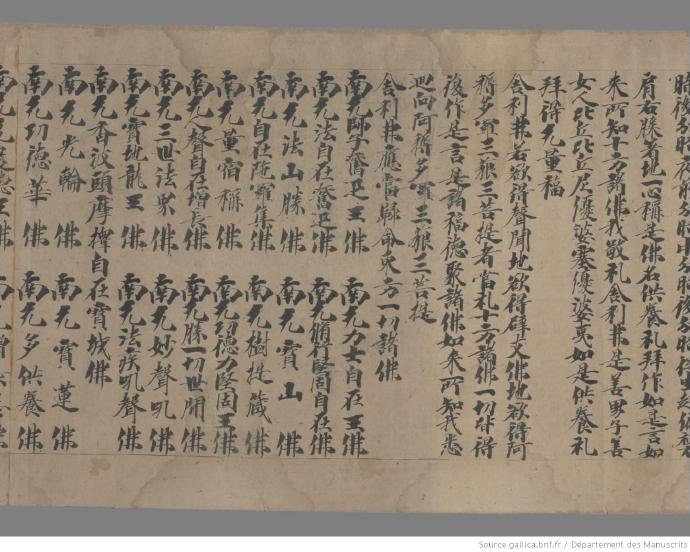 肩右膝著地一心稱是佛名供養礼拜作如是言如
來所知十方諸佛我敬礼舍利弗是善男子善
女人比丘比丘尼優婆塞優婆夷如是供養礼
拜得无量福
舍利弗若欲得聲聞地欲得辟支佛地欲得阿
耨多羅三藐三菩提者當礼十方諸佛一切
復作是言是諸福德聚諸佛如來所知我悉
迴向阿耨多羅三藐三菩提
舍利弗應當歸命東方一切諸佛
南无師子奮迅王佛 南无力士自在王佛
南无法自在奮迅佛 南无 堅固自在佛
南无法山勝佛 南无寶山佛
南无自在陀羅 佛 南无樹提藏佛
南无董宿稱佛 南无功德力堅固王佛
南无 聲自在增長佛 南无勝一切世間佛
南无三世法界佛 南无妙聲吼佛
南无寶地龍王佛 南无法疾吼聲佛
南无香波頭摩擇自在寶城佛
南无光輪佛 南无寶蓮佛
南无功德華佛 南无多供養佛